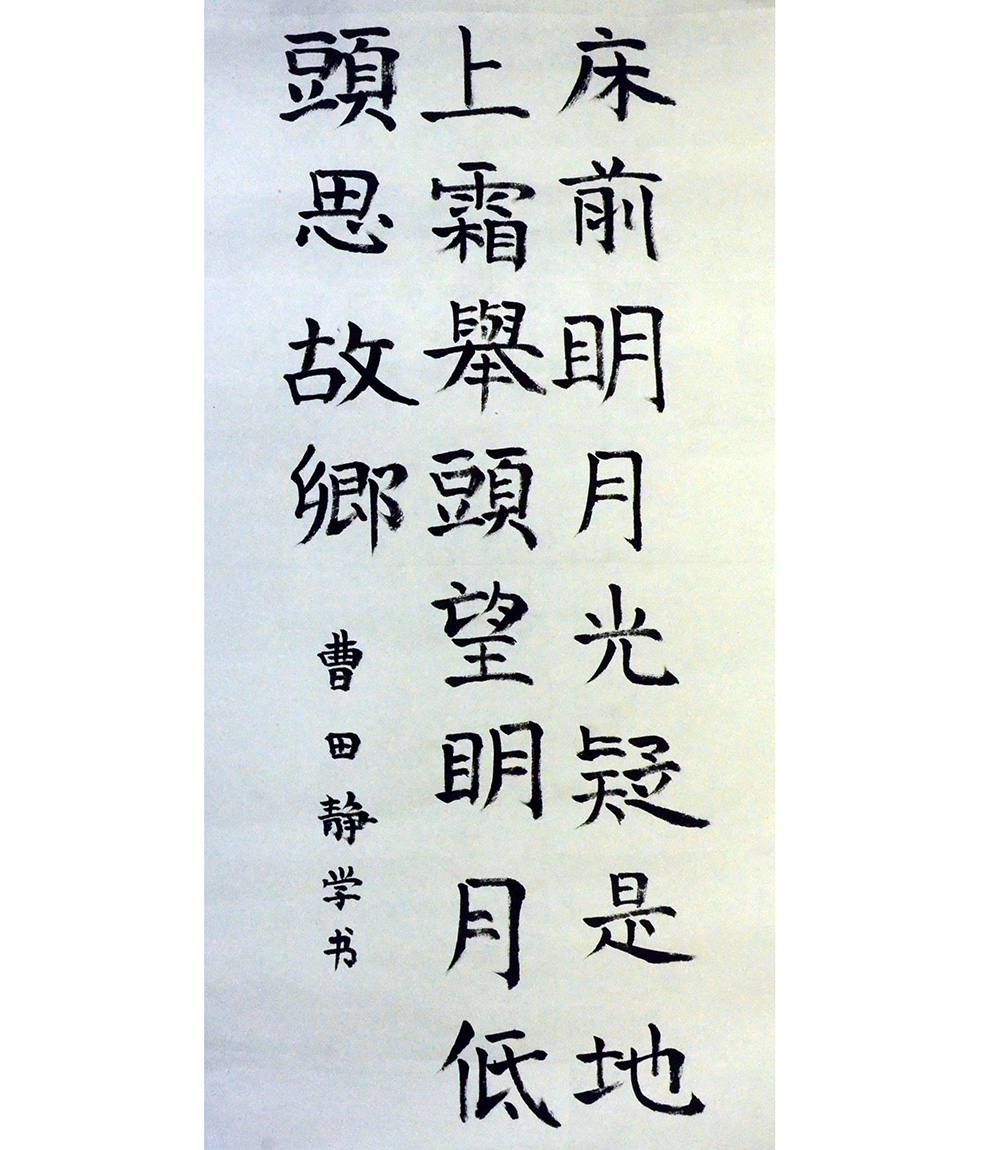 床前明月光疑是地
上霜舉頭望明月低
頭思故鄉
曹田静学书